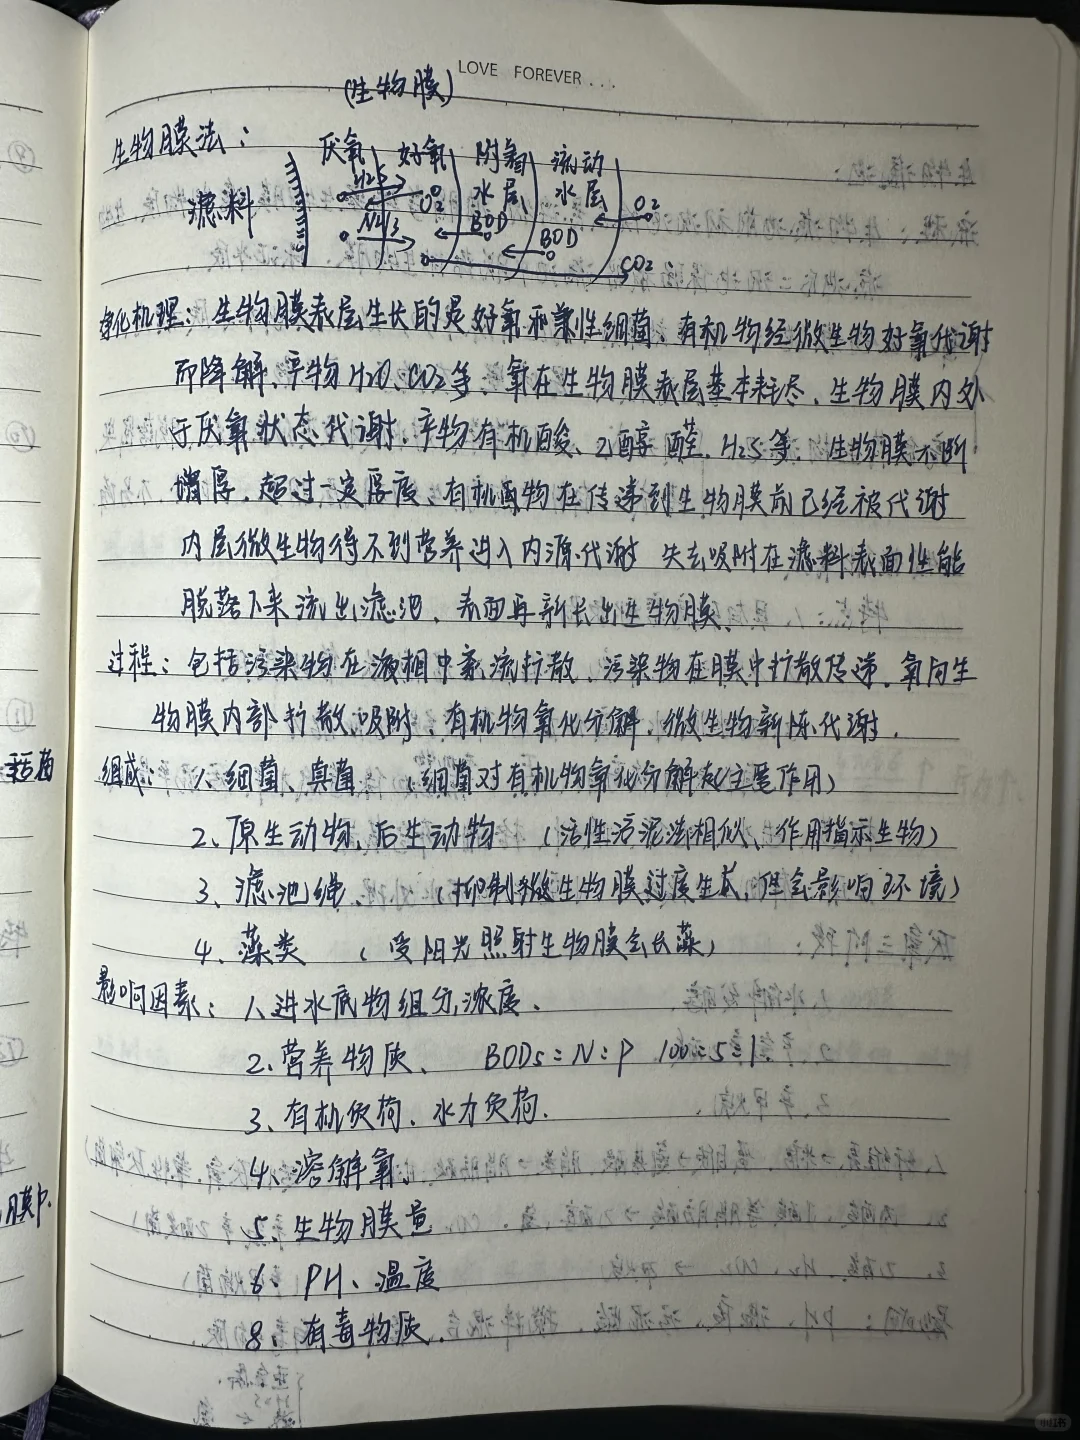 LOVE FOREVER...
(生物膜)
生物膜法：
厌氧 好氧 附着水层 流动水层
滤料
H2S O2 O2
NH3 BOD BOD
CO2
净化机理：生物膜表层生长的是好氧和兼性细菌、有机物经微生物好氧代谢
而降解、产物H2O、CO2等、氧在生物膜表层基本耗尽、生物膜内处
于厌氧状态代谢、产物有机酸、乙醇 醛、H2S等、生物膜不断
增厚、超过一定厚度、有机物在传递到生物膜前已经被代谢
内层微生物得不到营养进入内源代谢 失去吸附在滤料表面性能
脱落下来流出滤池、表面再新长出生物膜、
过程：包括污染物在液相中紊流扩散、污染物在膜中扩散传递、氧向生
物膜内部扩散、吸附、有机物氧化分解、微生物新陈代谢.
组成：1、细菌、真菌 (细菌对有机物氧化分解起主要作用)
2、原生动物、后生动物 (活性污泥法相似、作用指示生物)
3、滤池蝇、 (抑制微生物膜过度生长、但会影响环境)
4、藻类 (受阳光照射生物膜会长藻)
影响因素：1、进水底物组分,浓度、
2、营养物质、 BOD5：N：P 100：5：1.
3、有机负荷、水力负荷.
4、溶解氧
5、生物膜量
6、PH、温度
8、有毒物质.
膜中.